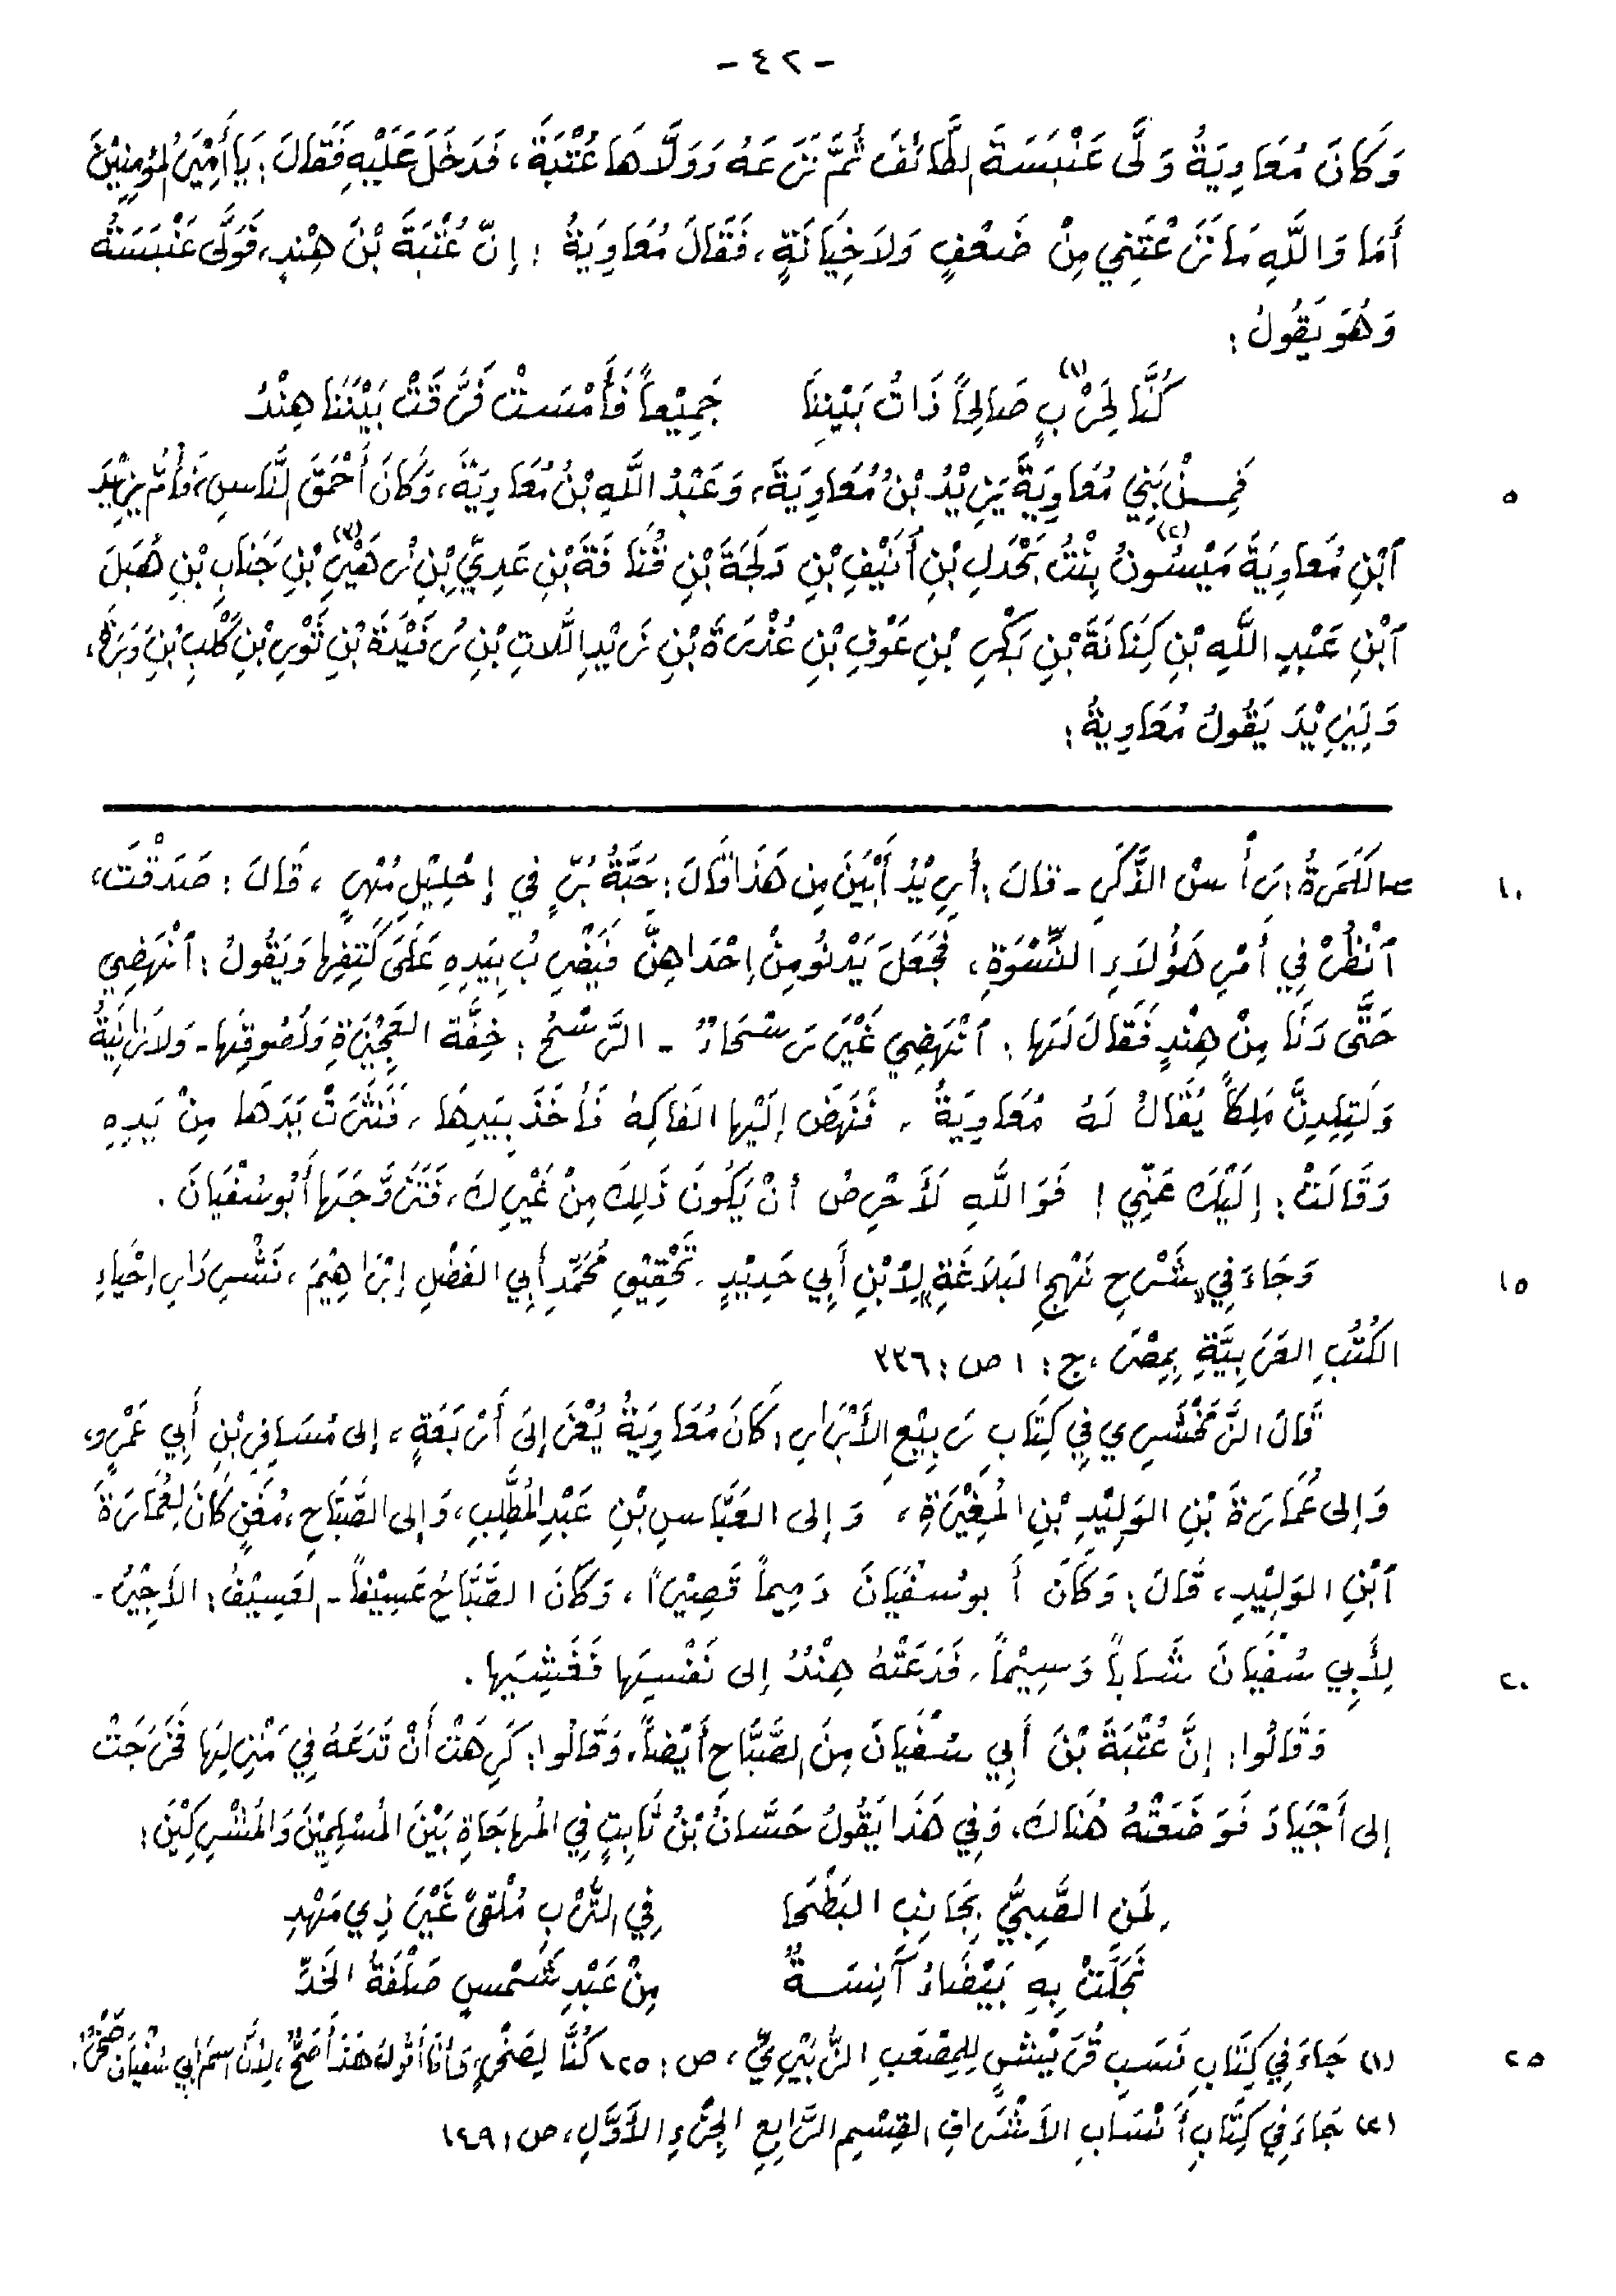 - ٤٢ -
وَكَانَ مُعَاوِيَةُ وَلَّى عَنْبَسَةَ الطَّائِفَ ثُمَّ نَزَعَهُ وَوَلَّاهَا عُتْبَةَ، فَدَخَلَ عَلَيْهِ فَقَالَ: يَا أَمِيْرَ المُؤْمِنِيْنَ
أَمَا وَاللَّهِ مَا نَزَعْتَنِي مِنْ ضَعْفٍ وَلاَ خِيَانَةٍ، فَقَالَ مُعَاوِيَةُ: إِنَّ عُتْبَةَ بْنَ هِنْدٍ، فَوَلَّى عَنْبَسَةُ
وَهُوَ يَقُولُ:
كُنَّا لِحَرْبٍ (١) صَالِحاً ذَاتُ بَيْنِنَا جَمِيْعاً فَأَمْسَتْ فَرَّقَتْ بَيْنَنَا هِنْدُ
٥ فَمِنْ بَنِي مُعَاوِيَةَ يَزِيْدُ بْنُ مُعَاوِيَةَ، وَعَبْدُ اللَّهِ بْنُ مُعَاوِيَةَ، وَكَانَ أَحْمَقَ النَّاسِ، فَأُمُّ يَزِيْدَ
ٱبْنِ مُعَاوِيَةَ مَيْسُونُ (٢) بِنْتُ بَحْدَلِ بْنِ أُنَيْفِ بْنِ دَلَجَةَ بْنِ قُنَافَةَ بْنِ عَدِيِّ بْنِ زُهَيْرِ (٣) بْنِ جَنَابِ بْنِ هُبَلَ
ٱبْنِ عَبْدِ اللَّهِ بْنِ كِنَانَةَ بْنِ بَكْرِ بْنِ عَوْفِ بْنِ عُذْرَةَ بْنِ زَيْدِ اللَّاتِ بْنِ رُفَيْدَةَ بْنِ ثَوْرِ بْنِ كَلْبِ بْنِ وَبَرَةَ،
وَلِيَزِيْدَ يَقُولُ مُعَاوِيةُ:
١٠ = الكَمَرَةُ: رَأْسُ الذَّكَرِ - قالَ: أُرِيْدُ أَبْيَنَ مِن هَذَا قَالَ: حَبَّةُ بُرٍّ في إِحْلِيْلِ مُهْرٍ، قَالَ: صَدَقْتَ،
ٱنْظُرْ فِي أَمْرِ هَؤُلاَءِ النِّسْوَةِ، فَجَعَلَ يَدْنُو مِنْ إِحْدَاهِنَّ فَيَضْرِبُ بِيَدِهِ عَلَى كَتِفِها وَيَقُولُ: ٱنْهَضِي
حَتَّى دَنَا مِنْ هِنْدٍ فَقَالَ لَهَا: ٱنْهَضِي غَيْرَ رَسْحَاءُ - الرَّسْحُ: خِفَّة العَجِيْزَةِ وَلُصُوقِها - وَلاَ زَانِيَةُ
وَلَتِلِدِنَّ مَلِكاً يُقَالُ لَهُ مُعَاوِيَةُ، فَنَهَضَ إِلَيْها الفَاكِهُ فَأَخَذَ بِيَدِهَا، فَنَثَرَتْ يَدَهَا مِنْ يَدِهِ
وَقَالَتْ: إِلَيْكَ عَنِّي! فَوَاللَّهِ لَأَحْرِصُ أنْ يَكُونَ ذَلِكَ مِنْ غَيْرِكَ، فَتَزَوَّجَهَا أَبُو سُفْيَانَ.
١٥ وَجَاءَ فِي «شَرْحِ نَهْجِ البَلاَغَةِ» لِابْنِ أَبِي حَدِيْدٍ، تَحْقِيْقِ مُحَمَّدِ أَبِي الفَضْلِ إِبْرَاهِيْمَ، نَشْرِ دَارِ إِحْيَاءِ
الكُتُبِ العَرَبِيَّةِ بِمِصْرَ، ج: ١ ص: ٣٣٦
قَالَ الزَّمَخْشَرِي فِي كِتَابِ رَبِيْعِ الأَبْرَارِ: كَانَ مُعَاوِيَةُ يُعْزَ إِلَى أَرْبَعَةٍ، إلى مُسَافِرِ بْنِ أَبِي عَمْرٍو،
وَإلى عُمَارَةَ بْنِ الوَلِيْدِ بْنِ المُغِيْرَةِ، وَإلى العَبَّاسِ بْنِ عَبْدِ المُطَّلِبِ، وَإلى الصَّبَّاحِ، مُغَنٍ كَانَ لِعُمَارَةَ
ٱبْنِ الوَلِيْدِ، قَالَ: وَكَانَ أَبو سُفْيَانَ دَمِيماً قَصِيْراً، وَكَانَ الصَّبَّاحُ عَسِيْفاً - العَسِيْفُ: الأَجْيْرُ -
٢٠ لِأَبِي سُفْيَانَ شَاباً وَسِيْماً، فَدَعَتْهُ هِنْدُ إلى نَفْسِهَا فَغَشِيَها.
وَقَالُوا: إِنَّ عُتْبَةَ بْنَ أَبِي سُفْيَانَ مِنَ الصَّبَّاحِ أَيْضاً، وَقَالُوا: كَرِهَتْ أَنْ تَدَعَهُ فِي مَنْزِلِهَا فَخَرَجَتْ
إلى أَجْيَادَ فَوَضَعَتْهُ هُنَاكَ، وَفِي هَذَا يَقُولُ حَسَّانُ بْنُ ثَابِتٍ فِي المُهاجَاةِ بَيْنَ المُسْلِمِيْنَ وَالمُشْرِكِيْنَ:
لِمَنِ الصَّبِيُّ بِجَانِبِ البَطْحَا فِي التُّرْبِ مُلْقىً غَيْرَ ذِي مَهْدِ
نَجَلَتْ بِهِ بَيْضَاءُ آنِسَةٌ مِنْ عَبْدِ شَمْسٍ صَلْفَةُ الخَدِّ
٢٥ (١) جَاءَ فِي كِتَابِ نَسَبِ قُرَيْشٍ لِلمِصْعَبِ الزُّبَيْرِيِّ، ص: ١٢٥ كُنَّا لِصَخْرٍ، وَأَنَا أَقُولُ هَذَا أَصَحُّ، لِأَنَّ اسمَ أَبِي سُفْيَانَ صَخْرٌ.
(٢) جَاءَ فِي كِتَابِ أَنْسَابِ الأَشْرَافِ القِسْمِ الرَّابِعِ الجُزْءِ الأَوَّلِ، ص: ١٤٩